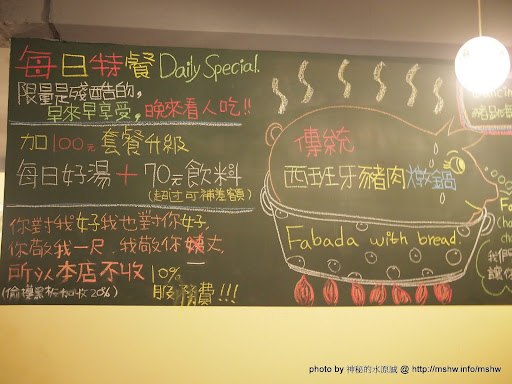 每日特餐 Daily Special.
限量是殘酷的,
早來早享受, 晚來看人吃!!
加100元 套餐升級
每日好湯 + 70元飲料
(超過可補差額)
你對我好我也對你好.
你敬我一尺,我敬你一丈.
所以本店不收 10%
服務費!!!
(偷摸黑板加收20%)
傳統
西班牙豬肉燉鍋
Fabada with bread.
photo by 神秘的水瓶誠 @ http://mshw.info/mshw